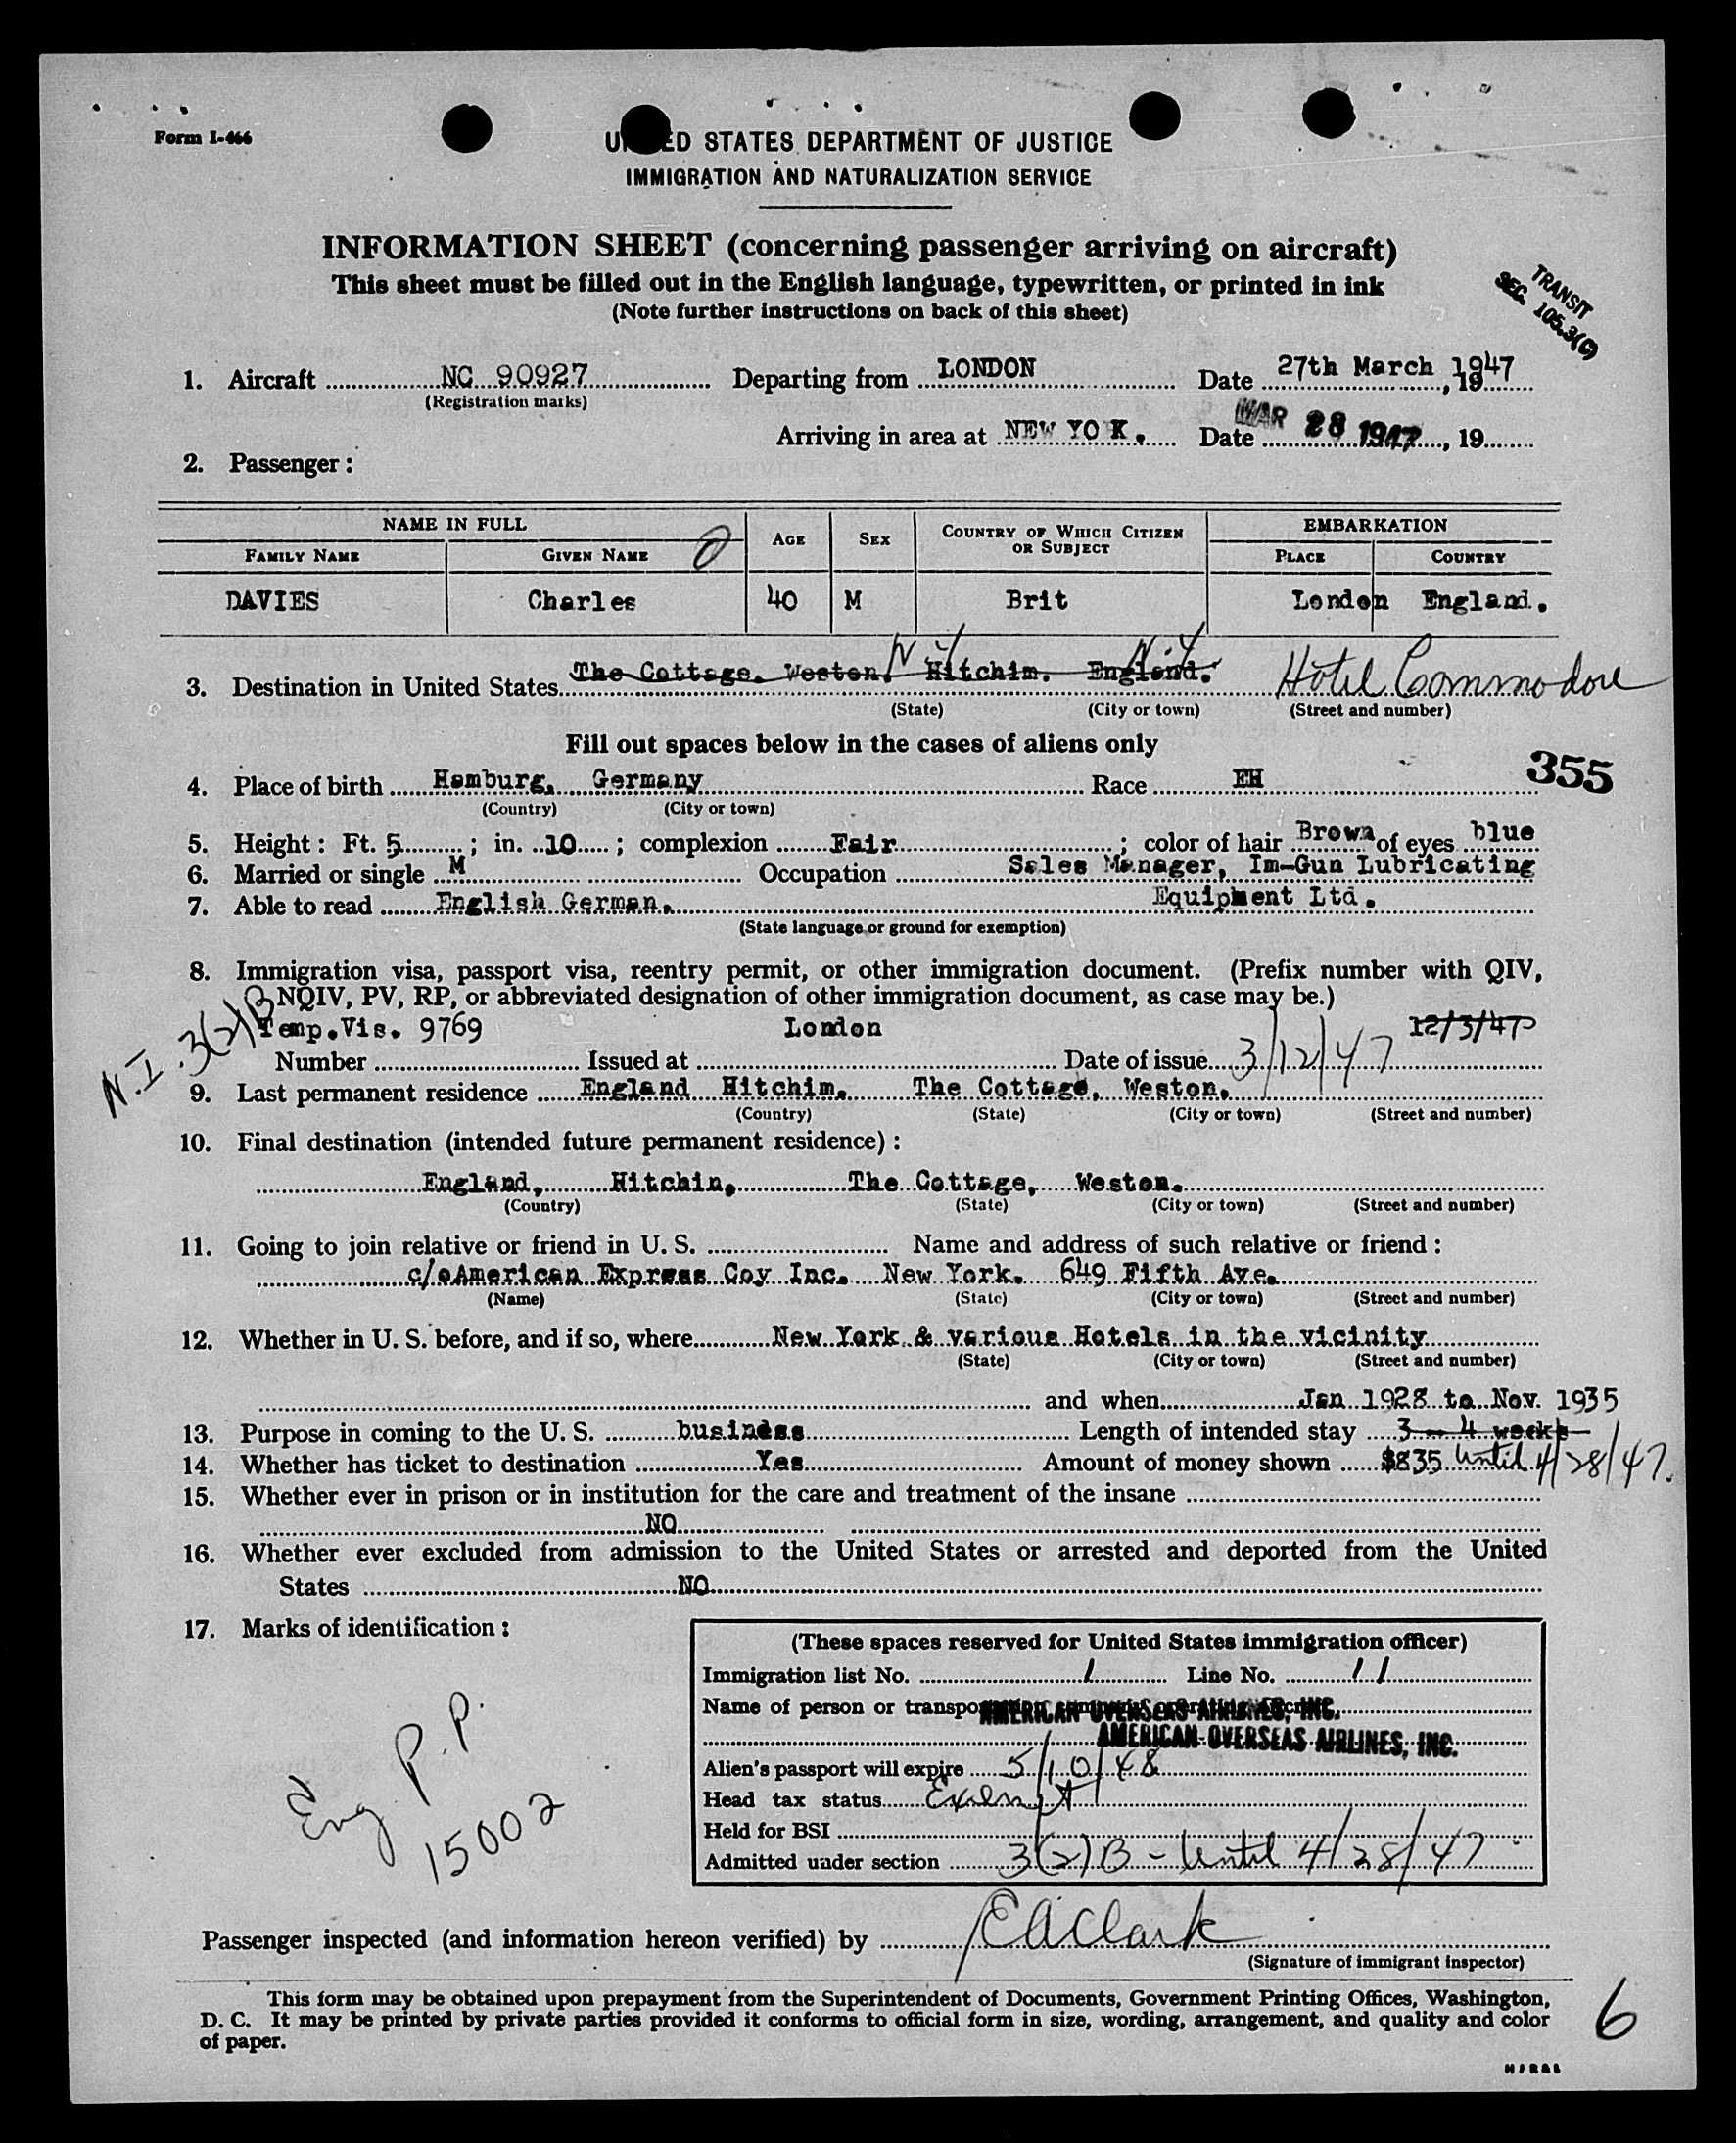 Form I-466
UNITED STATES DEPARTMENT OF JUSTICE
IMMIGRATION AND NATURALIZATION SERVICE
INFORMATION SHEET (concerning passenger arriving on aircraft)
This sheet must be filled out in the English language, typewritten, or printed in ink
(Note further instructions on back of this sheet)
TRANSIT
SEC. 105.3(C)
1. Aircraft NC 90927 Departing from LONDON Date 27th March 1947, 19
(Registration marks)
Arriving in area at NEW YO K. Date MAR 28 1947, 19
2. Passenger:
NAME IN FULL AGE SEX COUNTRY OF WHICH CITIZEN OR SUBJECT EMBARKATION
FAMILY NAME GIVEN NAME PLACE COUNTRY
DAVIES Charles 40 M Brit London England.
N.Y N.Y.
3. Destination in United States The Cottage. Weston. Hitchim. England. Hotel Commodore
(State) (City or town) (Street and number)
Fill out spaces below in the cases of aliens only
355
4. Place of birth Hamburg, Germany Race EH
(Country) (City or town)
5. Height: Ft. 5; in. 10; complexion Fair; color of hair Brown of eyes blue
6. Married or single M Occupation Sales Manager, Im-Gun Lubricating
7. Able to read English German. Equipment Ltd.
(State language or ground for exemption)
8. Immigration visa, passport visa, reentry permit, or other immigration document. (Prefix number with QIV,
NQIV, PV, RP, or abbreviated designation of other immigration document, as case may be.)
N.I. 3(2)B
Temp.Vis. 9769 London 12/3/47
Number Issued at Date of issue 3/12/47
9. Last permanent residence England Hitchim. The Cottage, Weston.
(Country) (State) (City or town) (Street and number)
10. Final destination (intended future permanent residence):
England, Hitchin, The Cottage, Weston.
(Country) (State) (City or town) (Street and number)
11. Going to join relative or friend in U. S. Name and address of such relative or friend:
c/oAmerican Express Coy Inc. New York. 649 Fifth Ave.
(Name) (State) (City or town) (Street and number)
12. Whether in U. S. before, and if so, where New York & various Hotels in the vicinity
(State) (City or town) (Street and number)
and when Jan 1928 to Nov. 1935
13. Purpose in coming to the U. S. business Length of intended stay 3 - 4 weeks
14. Whether has ticket to destination Yes Amount of money shown $835 Until 4/28/47.
15. Whether ever in prison or in institution for the care and treatment of the insane
NO
16. Whether ever excluded from admission to the United States or arrested and deported from the United
States NO
17. Marks of identification:
Eng P.P.
15002
(These spaces reserved for United States immigration officer)
Immigration list No. 1 Line No. 11
Name of person or transpo AMERICAN OVERSEAS AIRLINES, INC.
AMERICAN OVERSEAS AIRLINES, INC.
Alien's passport will expire 5/10/48
Head tax status Exempt
Held for BSI
Admitted under section 3(2)B - Until 4/28/47
Passenger inspected (and information hereon verified) by EAClark
(Signature of immigrant inspector)
This form may be obtained upon prepayment from the Superintendent of Documents, Government Printing Offices, Washington,
D. C. It may be printed by private parties provided it conforms to official form in size, wording, arrangement, and quality and color
of paper.
6